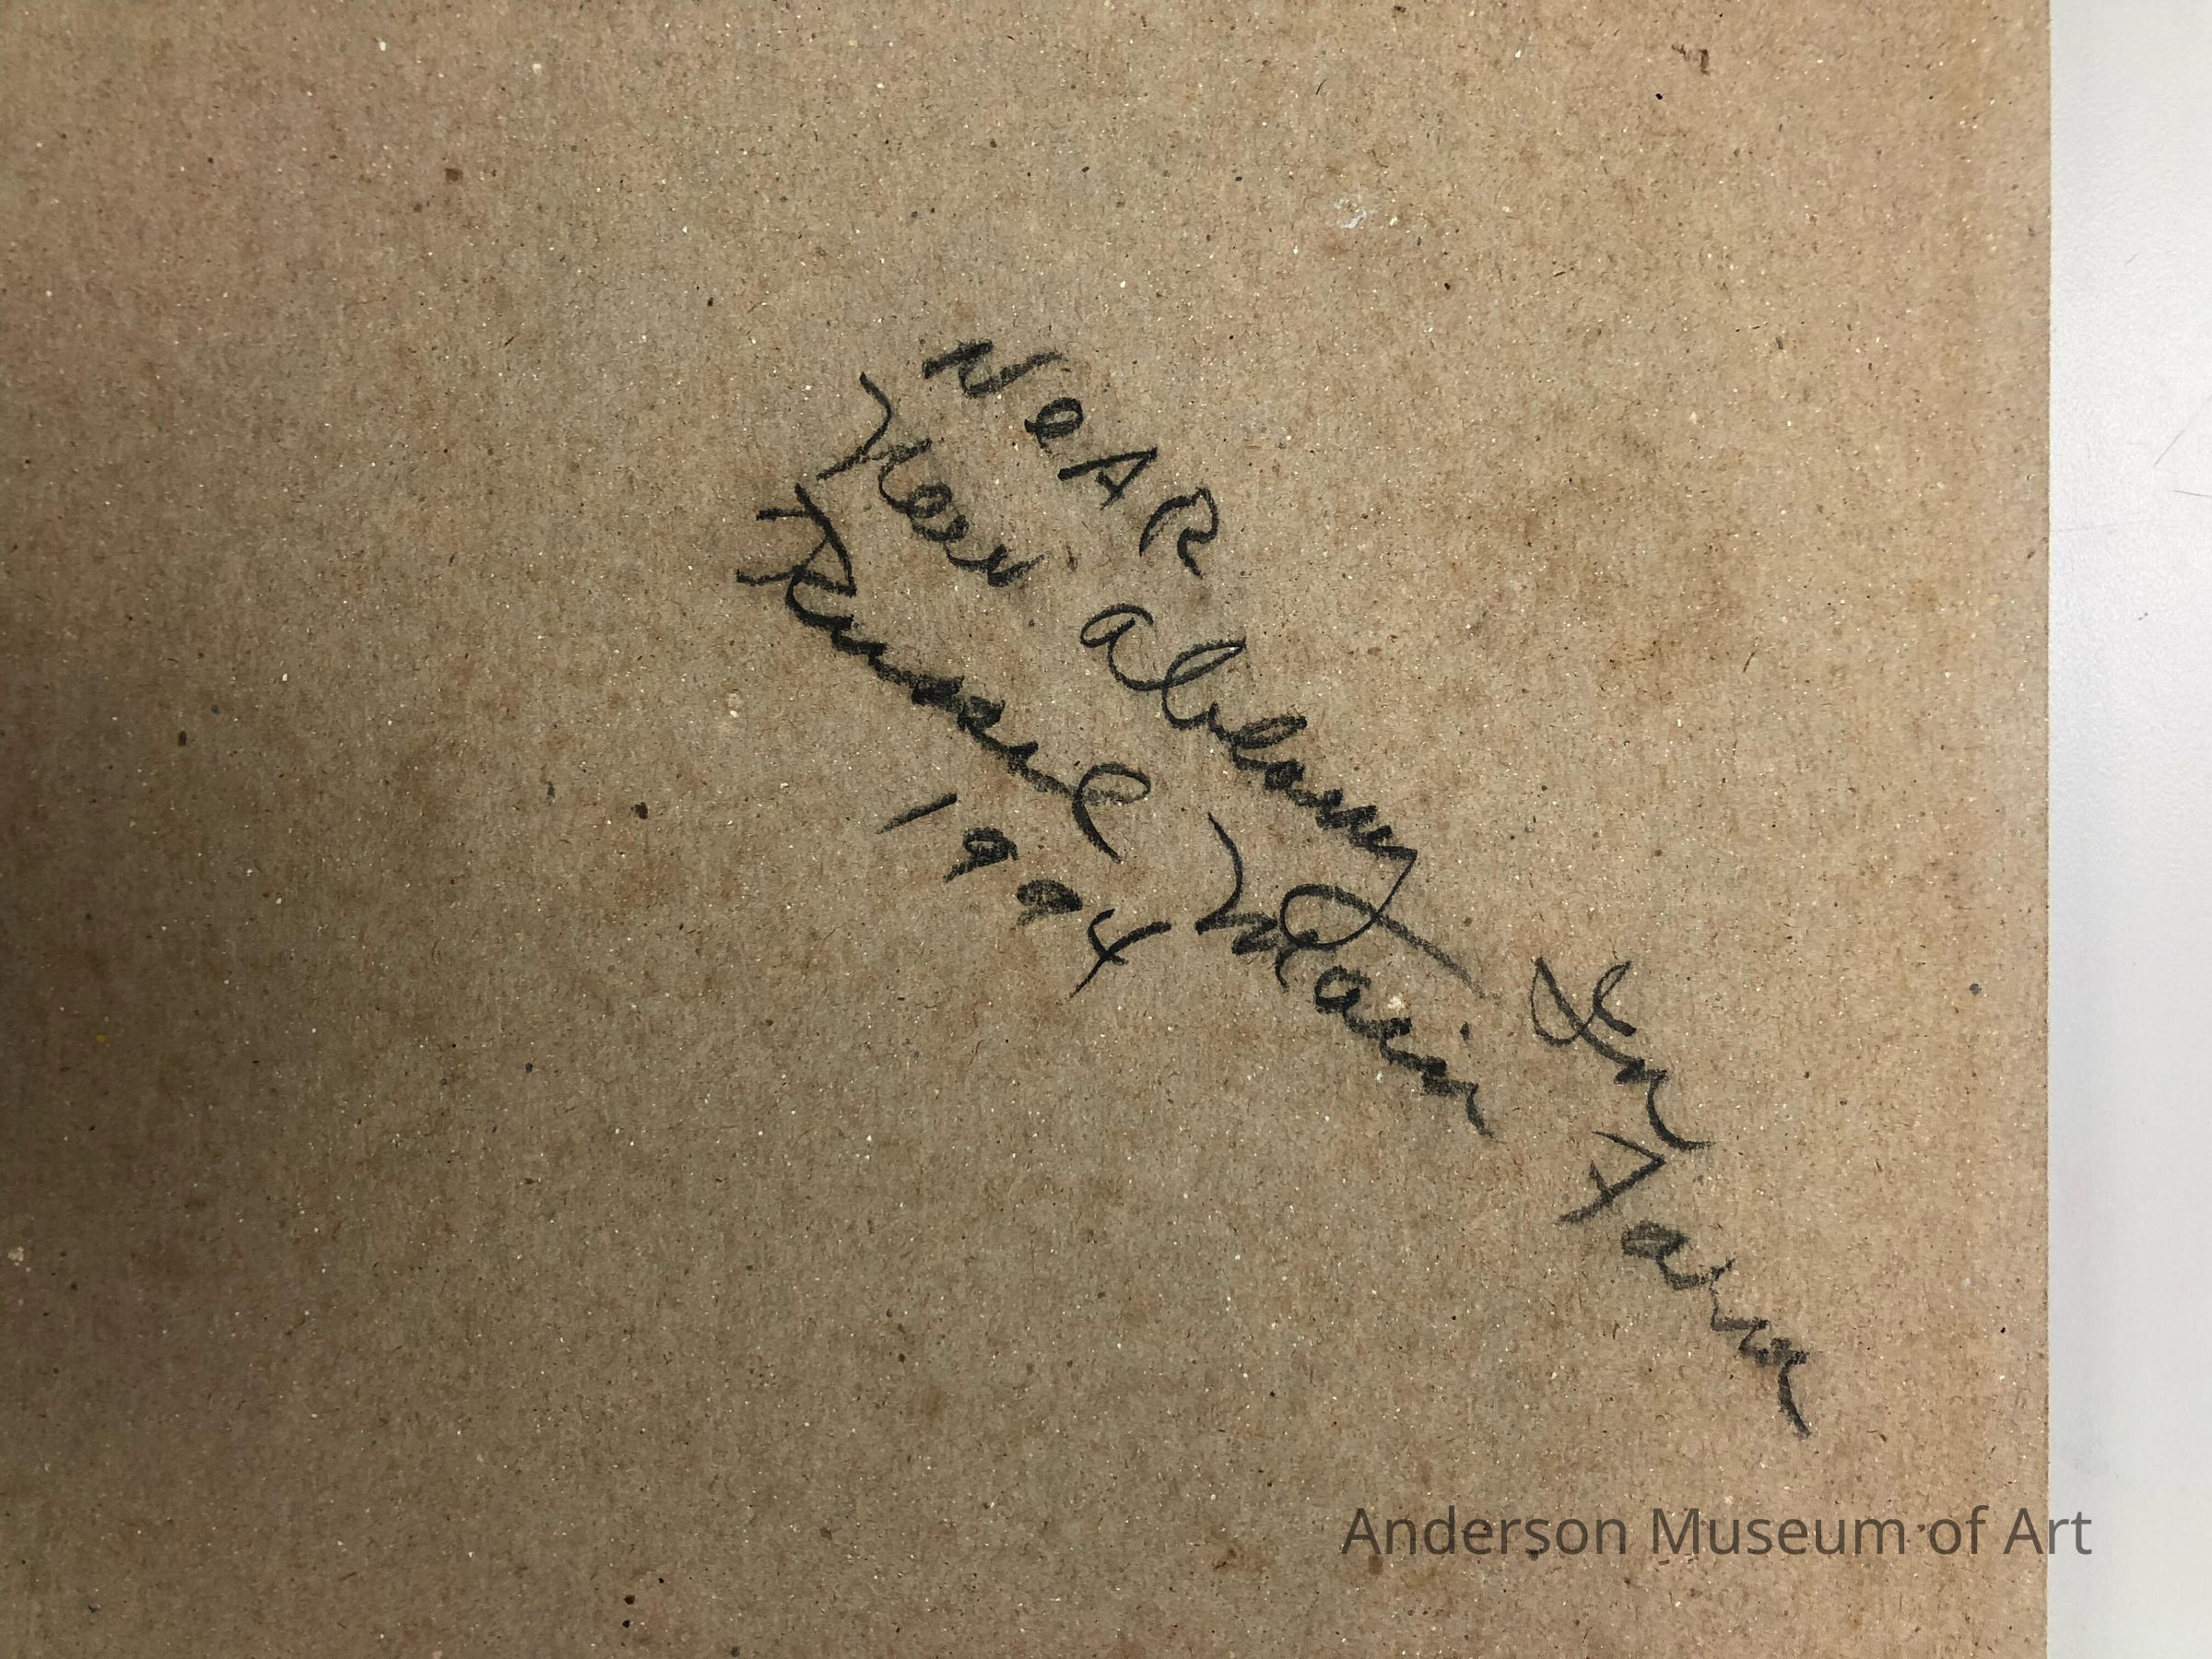 NeAR
New albany In
Russel Main Farm
1994
Anderson Museum of Art